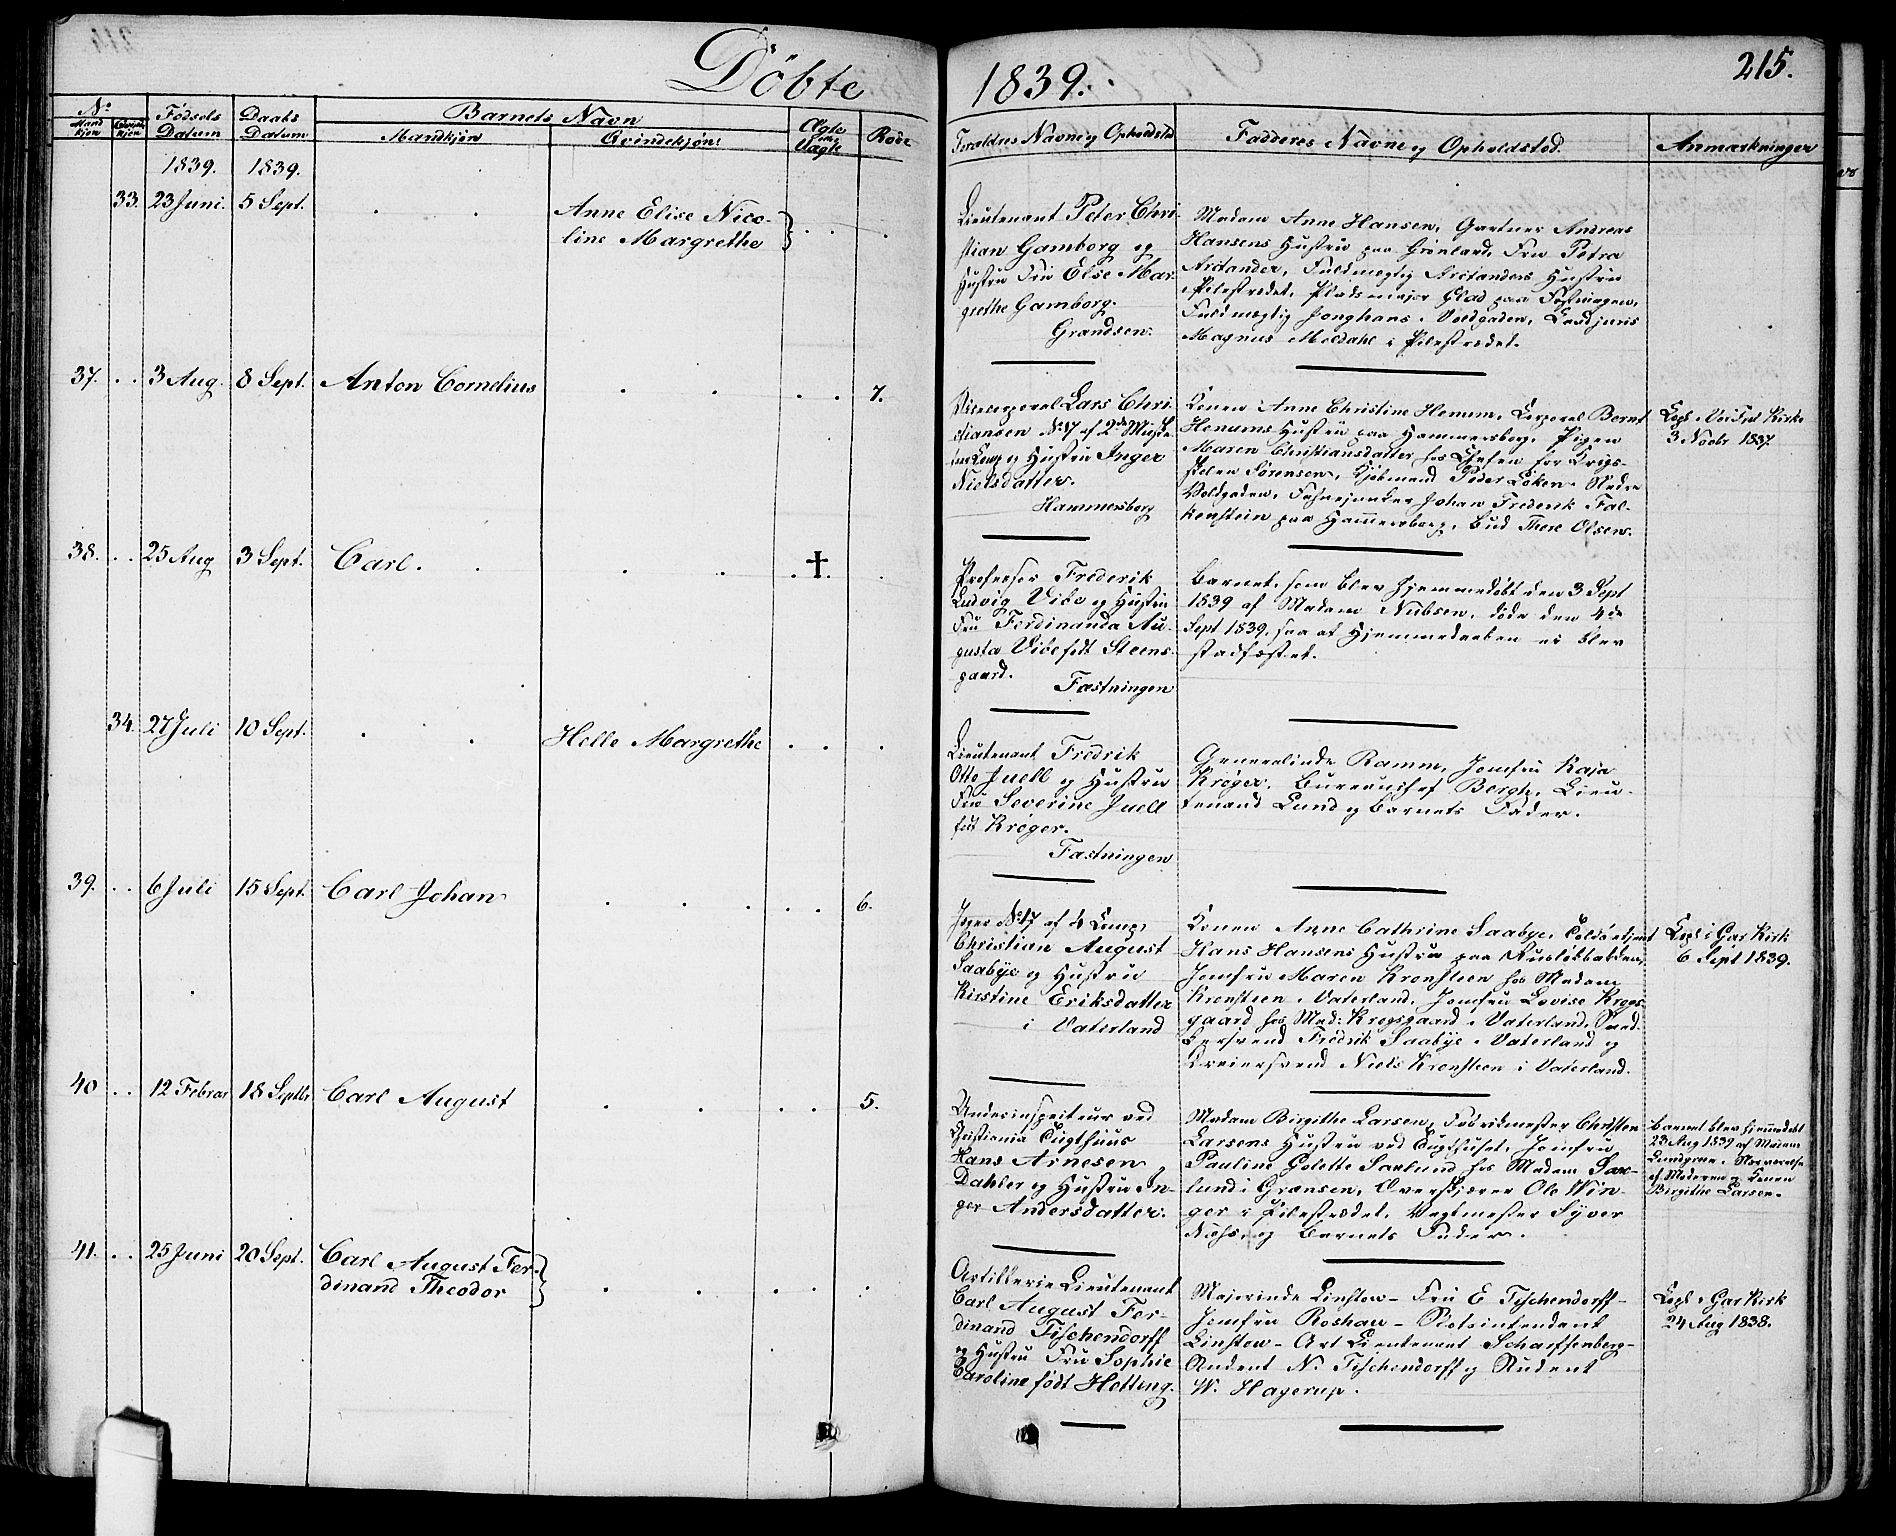 Döbte 1839.
215.
No
Mand kjön
Qvinde kjön
Födsels Datum
Daabs Datum
Barnets Navn
Mandkjön
Qvindekjön
Ægte eller Uægte
Rode
Foraldres Navne og Opholdsted
Fadderes Navne og Opholdsted.
Anmærkninger
1839. 1839.
33. 23 Juni. 5 Sept.
Anne Elise Nico-
line Margrethe
Lieutenant Peter Chri-
stian Gamborg og
Hustru Fru Else Mar-
grethe Gamborg.
Grændsen.
Madam Anne Hansen, Gartner Andreas
Hansens Hustru paa Grönland, Fru Petra
Arctander, Fuldmægtig Arctanders Hustru
i Pilestrædet, Pladsmajor Glad paa Fæstningen,
Fuldmægtig Jonghans i Voldgaden, Candjuris
Magnus Moldahl i Pilestrædet.
37. 3 Aug. 8 Sept. Anton Cornelius 7.
Vicecorporal Lars Chri-
stiansen No 17 af 2de Muske-
teer Comp og Hustru Inger
Nielsdatter.
Hammersborg
Konen Anne Christine Henum, Corporal Bernt
Henums Hustru paa Hammersborg, Pigen
Maren Christiansdatter hos Chefen for Krigs-
skolen Sörensen, Kjöbmand Peder Löken i Nedre
Voldgaden, Fahnejunker Johan Frederik Fal-
kenstein paa Hammersborg, Bud Thore Olsen.
Copl i Vor Frel Kirke
3 Novbr 1837.
38. 25 Aug 3 Sept. Carl. †
Professor Frederik
Ludvig Vibe og Hustru
Fru Ferdinanda Au-
gusta Vibe født Steens-
gaard.
Fæstningen
Barnet, som blev hjemmedöbt den 3 Sept
1839 af Madam Nubsen, döde den 4de
Sept 1839, saa at Hjemmedaaben ei blev
stadfæstet.
34. 27 Juli 10 Sept.
Helle Margrethe
Lieutenant Fredrik
Otto Juell og Hustru
Fru Severine Juell
født Kröger.
Fæstningen
Generalinde Ramm, Jomfru Kaja
Kröger, Bureauchef Bergh, Lieu-
tenand Lund og Barnets Fader.
39. 6 Juli 15 Sept. Carl Johan 6.
Jæger No 17 af 4 Comp,
Christian August
Saabye og Hustru
Kirstine Eriksdatter
i Vaterland
Konen Anne Cathrine Saabye, Toldörtjent
Hans Hansens Hustru paa Ruselökbakken,
Jomfru Maren Kronsteen hos Madam
Kronsteen i Vaterland, Jomfru Lovise Krogs-
gaard hos Mad: Krogsgaard i Vaterland, Sned-
kersvend Fredrik Saabye i Vaterland og
Dreiersvend Niels Kronsteen i Vaterland.
Copl i Gar Kirk
6 Sept 1839.
40 12 Februar 18 Septbr Carl August 5.
Underinspecteur ved
Christiania Tugthuus
Hans Arnesen
Dahler og Hustru In-
ger Andersdatter.
Madam Birgithe Larsen, Fabrikmester Christen
Larsens Hustru ved Tugthuset, Jomfru
Pauline Golette Saxlund hos Madam Sax-
lund i Grænsen, Overskjærer Ole Win-
ger i Pilestrædet, Vagtmester Syver
Næhs og Barnets Fader.
Barnet blev hjemmedöbt
23 Aug 1839 af Madam
Lundgreen i Nærværelse
af Moderen og Konen
Birgithe Larsen.
41. 25 Juni 20 Sept. Carl August Fer-
dinand Theodor
Artillerie Lieutenant
Carl August Fer-
dinand Tischendorff
og Hustru Fru Sophie
Caroline født Hetting.
Majorinde Linstow – Fru E Tischendorff –
Jomfru Roshau – Slotsintendent
Linstow – Art Lieutenant Scharffenberg –
Student N. Tischendorff og Student
W. Hagerup.
Copl i Gar Kirk
24 Aug 1838.